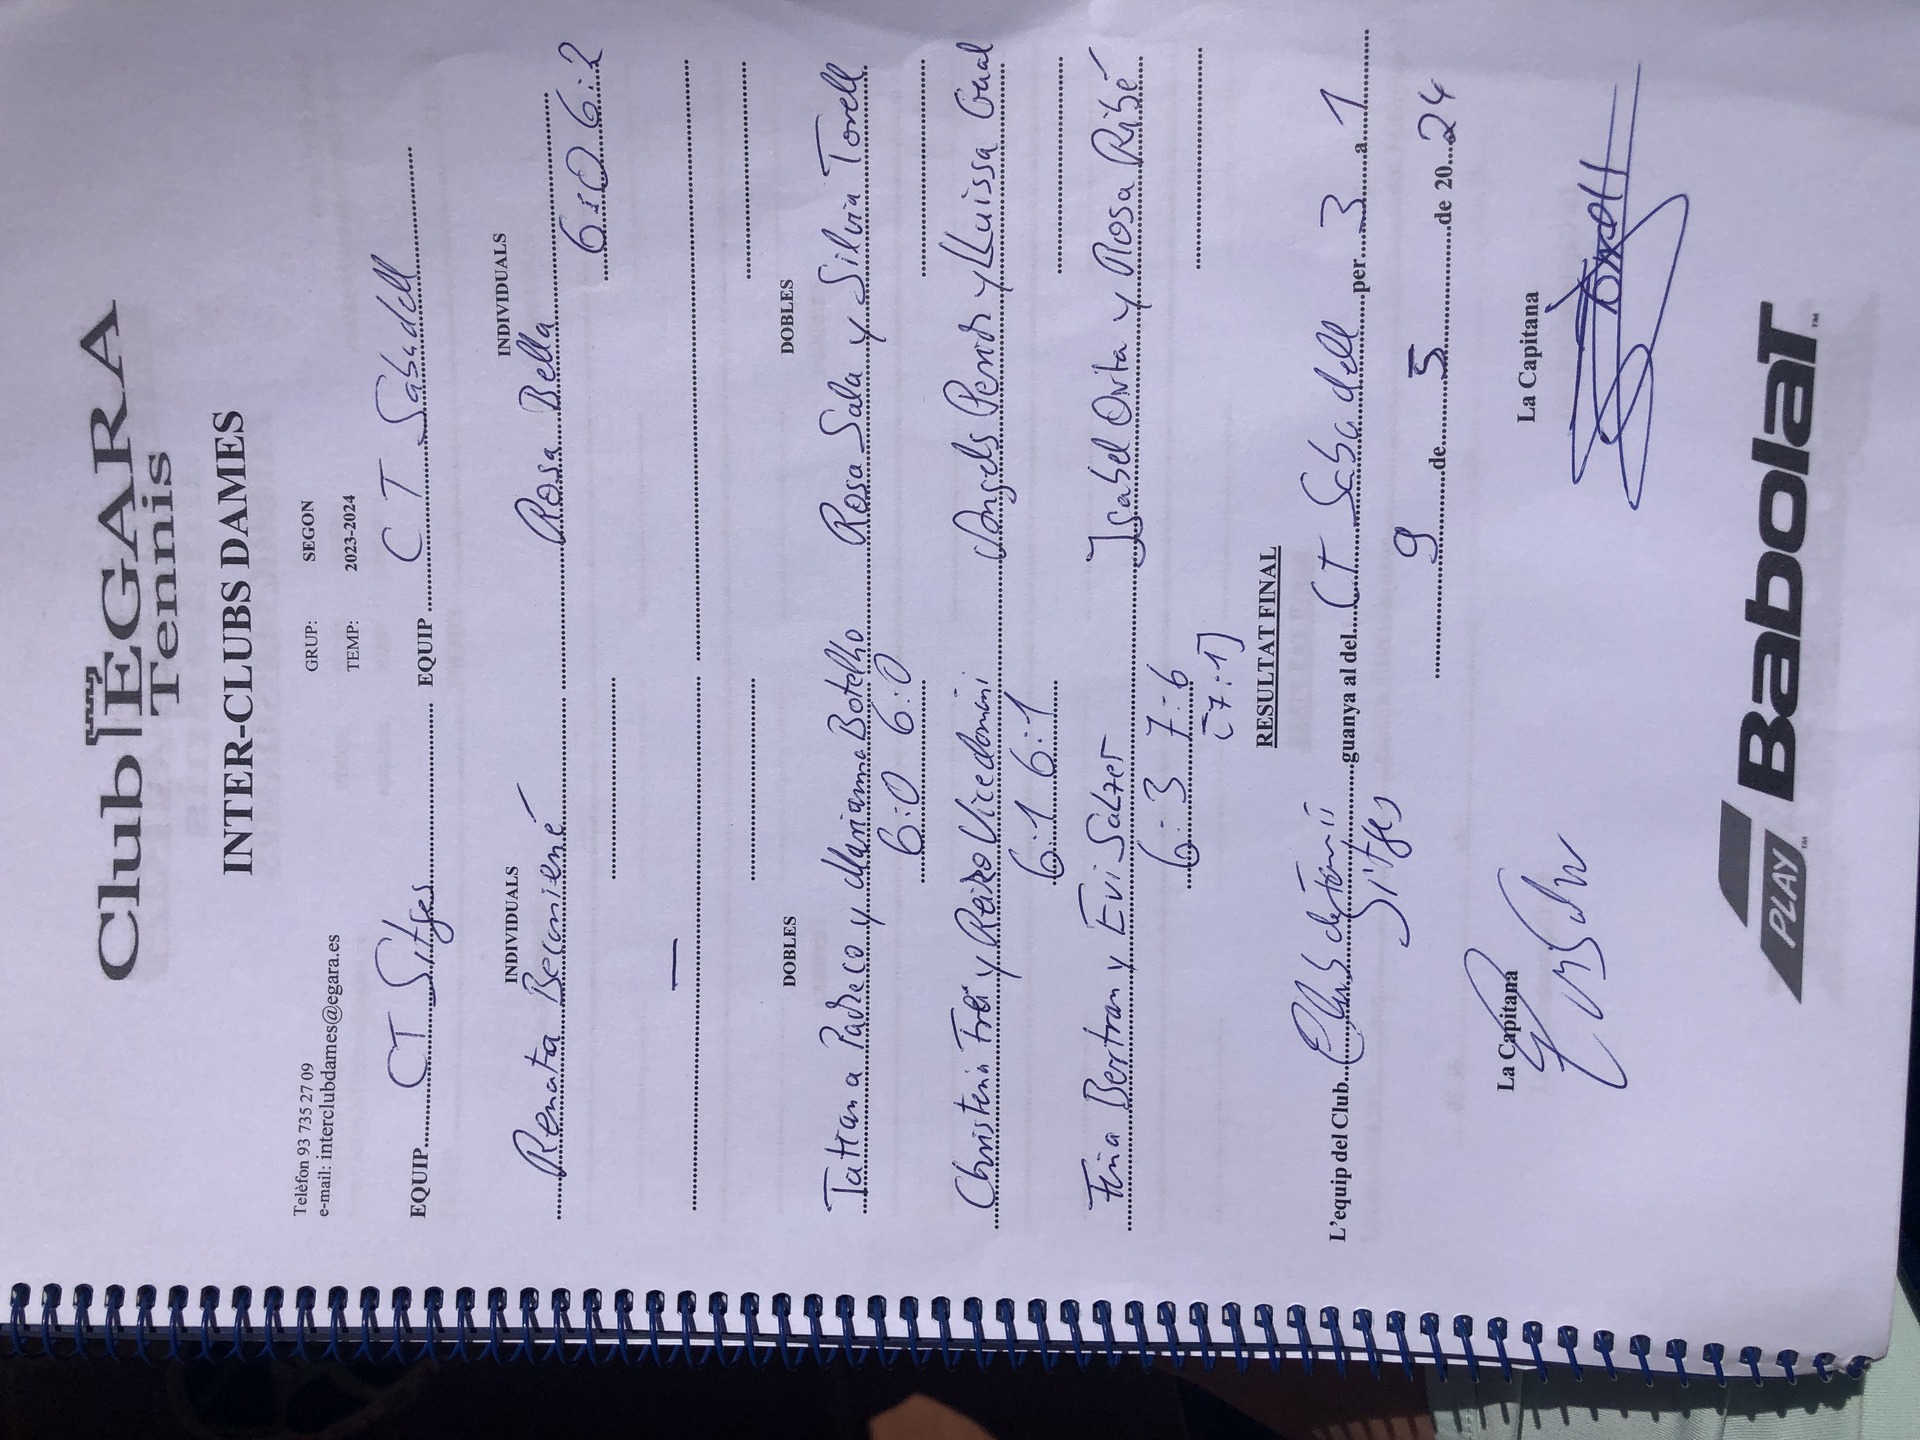 Club EGARA
Tennis
INTER-CLUBS DAMES
Telèfon 93 735 27 09
e-mail: interclubdames@egara.es
GRUP: SEGON
TEMP: 2023-2024
EQUIP CT Sitges EQUIP C T Sabadell
INDIVIDUALS INDIVIDUALS
Renata Rosa Bella
6:0 6:2
—
DOBLES DOBLES
Tatiana Padreco y Marianna Botelho Rosa Sala y Silvia Torell
6:0 6:0
Christina Frei y Reiko Vicedomini Angels y Lluissa Gual
6:1 6:1
Fina Bertran y Evi Salzer Isabel Orta y Rosa Ribé
6:3 7:6
[7:1]
RESULTAT FINAL
L'equip del Club Club de Tennis guanya al del CT Sabadell per 3 a 1
Sitges
9 de 5 de 2024
La Capitana La Capitana
PLAY Babolat